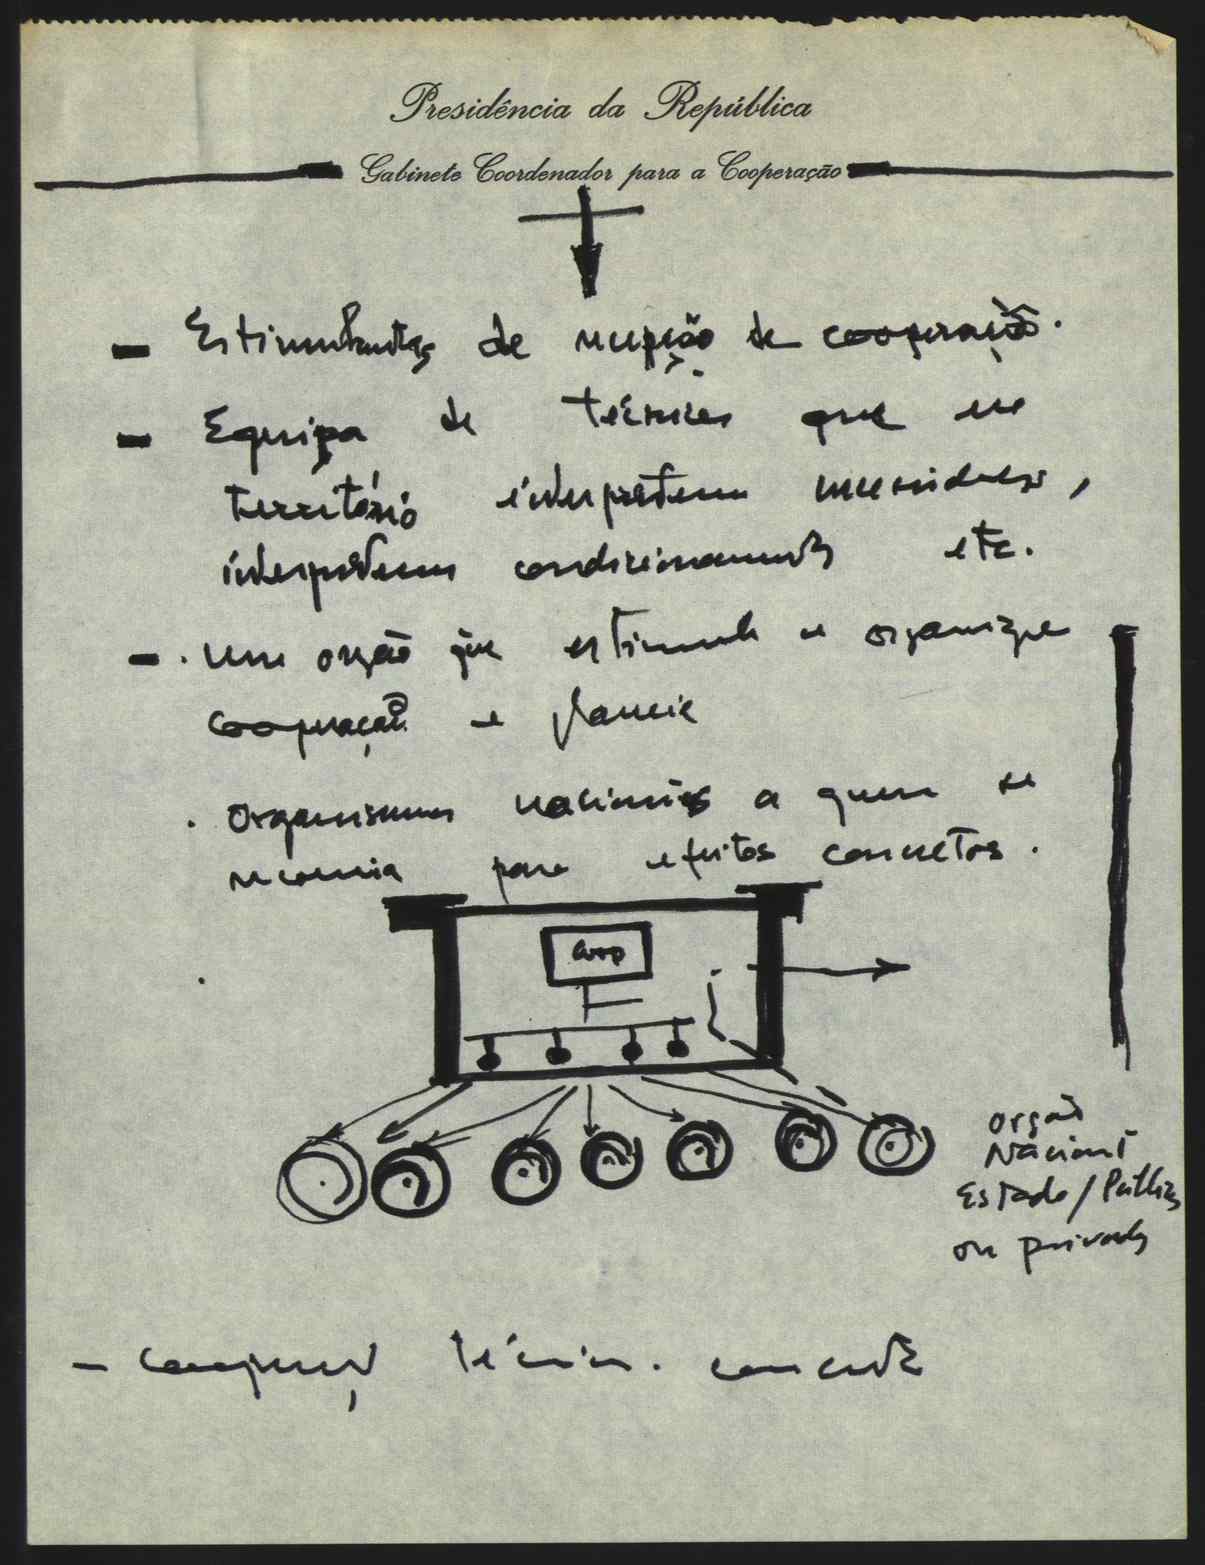 Presidência da República
Gabinete Coordenador para a Cooperação
- de recepção de cooperação.
- Equipa de técnicos que no
território interpretem necessidades,
interpretem condicionamentos etc.
- . um orgão que estimule e organize
cooperação e planeie
. Organismos nacionais a quem se
recorreria para efeitos concretos.
Coop
orgão
Nacional
Estado/Público
ou privado
- técnica. concreta